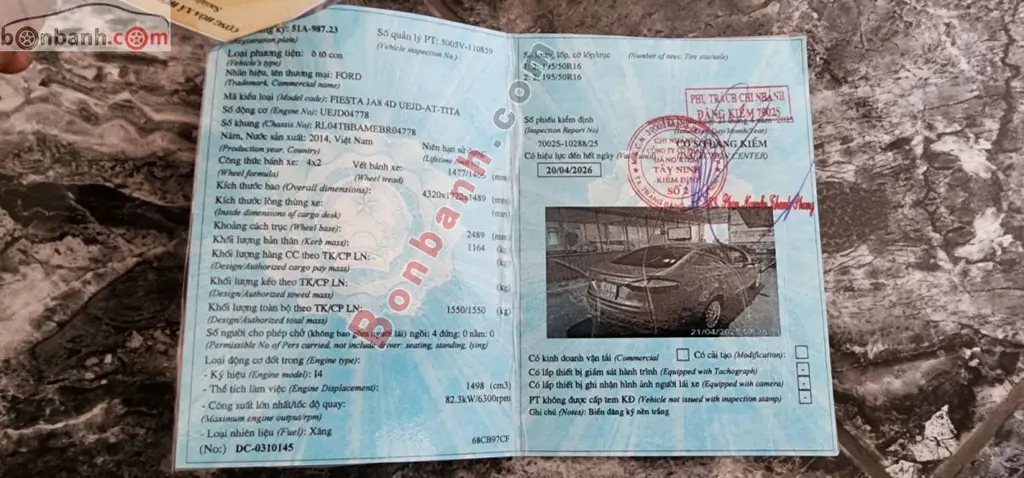 bonbanh.com
ký: 51A-987.23
(Registration plate)
Số quản lý PT: 5005V-110859
(Vehicle inspection No.)
Loại phương tiện: ô tô con
(Vehicle's type)
Nhãn hiệu, tên thương mại: FORD
(Trademark, Commercial name)
Mã kiểu loại (Model code): FIESTA JA8 4D UEJD-AT-TITA
Số động cơ (Engine No): UEJD04778
Số khung (Chassis No): RL04TBBAMEBR04778
Năm, Nước sản xuất: 2014, Việt Nam
(Production year, Country)
Niên hạn sử
(Lifetime
Công thức bánh xe: 4x2
(Wheel formula)
Vết bánh xe:
(Wheel tread)
(mm)
Kích thước bao (Overall dimensions):
(mm)
Kích thước lòng thùng xe:
(Inside dimensions of cargo desk)
(mm)
Khoảng cách trục (Wheel base): 2489 (mm)
Khối lượng bản thân (Kerb mass): 1164 (kg)
Khối lượng hàng CC theo TK/CP LN:
(Design/Authorized cargo pay mass)
Khối lượng kéo theo TK/CP LN:
(Design/Authorized towed mass)
Khối lượng toàn bộ theo TK/CP LN: 1550/1550 (kg)
(Design/Authorized total mass)
Số người cho phép chở (không bao gồm người lái) ngồi: 4 đứng: 0 nằm: 0
(Permissible No of Pers carried, not include driver: seating, standing, lying)
Loại động cơ đốt trong (Engine type):
- Ký hiệu (Engine model): I4
- Thể tích làm việc (Engine Displacement): 1498 (cm3)
- Công suất lớn nhất/tốc độ quay: 82.3kW/6300rpm
(Maximum engine output/rpm)
- Loại nhiên liệu (Fuel): Xăng
(No:) DC-0310145
68CB97CF
Bonbanh.com
Số lượng lốp, cỡ lốp/trục
(Number of tires; Tire size/axle)
1: 2; 195/50R16
2: 2; 195/50R16
PHỤ TRÁCH CHI NHÁNH
ĐĂNG KIỂM 7002S
Số phiếu kiểm định
(Inspection Report No)
70025-10288/25
CƠ SỞ ĐĂNG KIỂM
Có hiệu lực đến hết ngày
20/04/2026
TÂY NINH
KIỂM ĐỊNH
SỐ 2
21/04/2025
Có kinh doanh vận tải (Commercial
Có cải tạo (Modification):
Có lắp thiết bị giám sát hành trình (Equipped with Tachograph)
Có lắp thiết bị ghi nhận hình ảnh người lái xe (Equipped with camera)
PT không được cấp tem KĐ (Vehicle not issued with inspection stamp)
Ghi chú (Notes): Biển đăng ký nền trắng